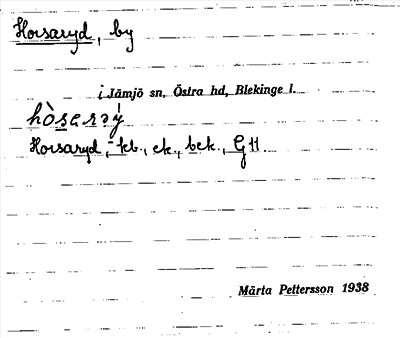 Horsaryd, by
i Jämjö sn, Östra hd, Blekinge l.
hòsarəý
Horsaryd, kb., ek., bek., GH.
Märta Pettersson 1938